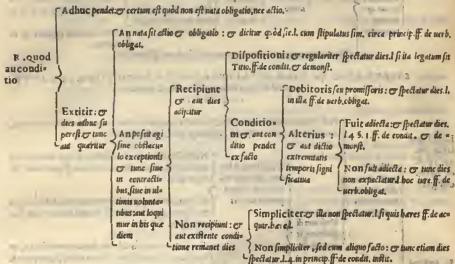 Adhuc pendet: & certum est quòd non est nata obligatio, nec actio.
An nata sit actio & obligatio: & dicitur quòd sic. l. cum stipulatus sim. circa princip. ff. de verb.
obligat.
R. quod
au condi
tio
Extitit: &
dies adhuc su
perest & tunc
aut quæritur
An possit agi
sine obstacu-
lo exceptionis
& tunc siue
in contracti-
bus, siue in ul-
timis volunta-
tibus aut loqui
mur in his quæ
diem
Recipiunt
& aut dies
adijcitur
Dispositioni: & regulariter spectatur dies. l. si ita legatum sit
Titio. ff. de condit. & demonst.
Conditio-
ni & aut con
ditio pendet
ex facto
Debitoris seu promissoris: & spectatur dies. l.
in illa ff. de uerb. obligat.
Alterius:
& aut dictio
extremitatis
temporis signi
ficatiua
Fuit adiecta: & spectatur dies.
l. 4 5. §. 1. ff. de condit. & de-
monst.
Non fuit adiecta: & tunc dies
non expectatur. l. hoc iure. ff. de
uerb. obligat.
Non recipiunt: &
aut existente condi-
tione remanet dies
Simpliciter & illa non spectatur. l. si quis hæres ff. de ac-
quir. hæred.
Non simpliciter, sed cum aliquo facto: & tunc etiam dies
spectatur. l. 4. in princip. ff. de condit. instit.